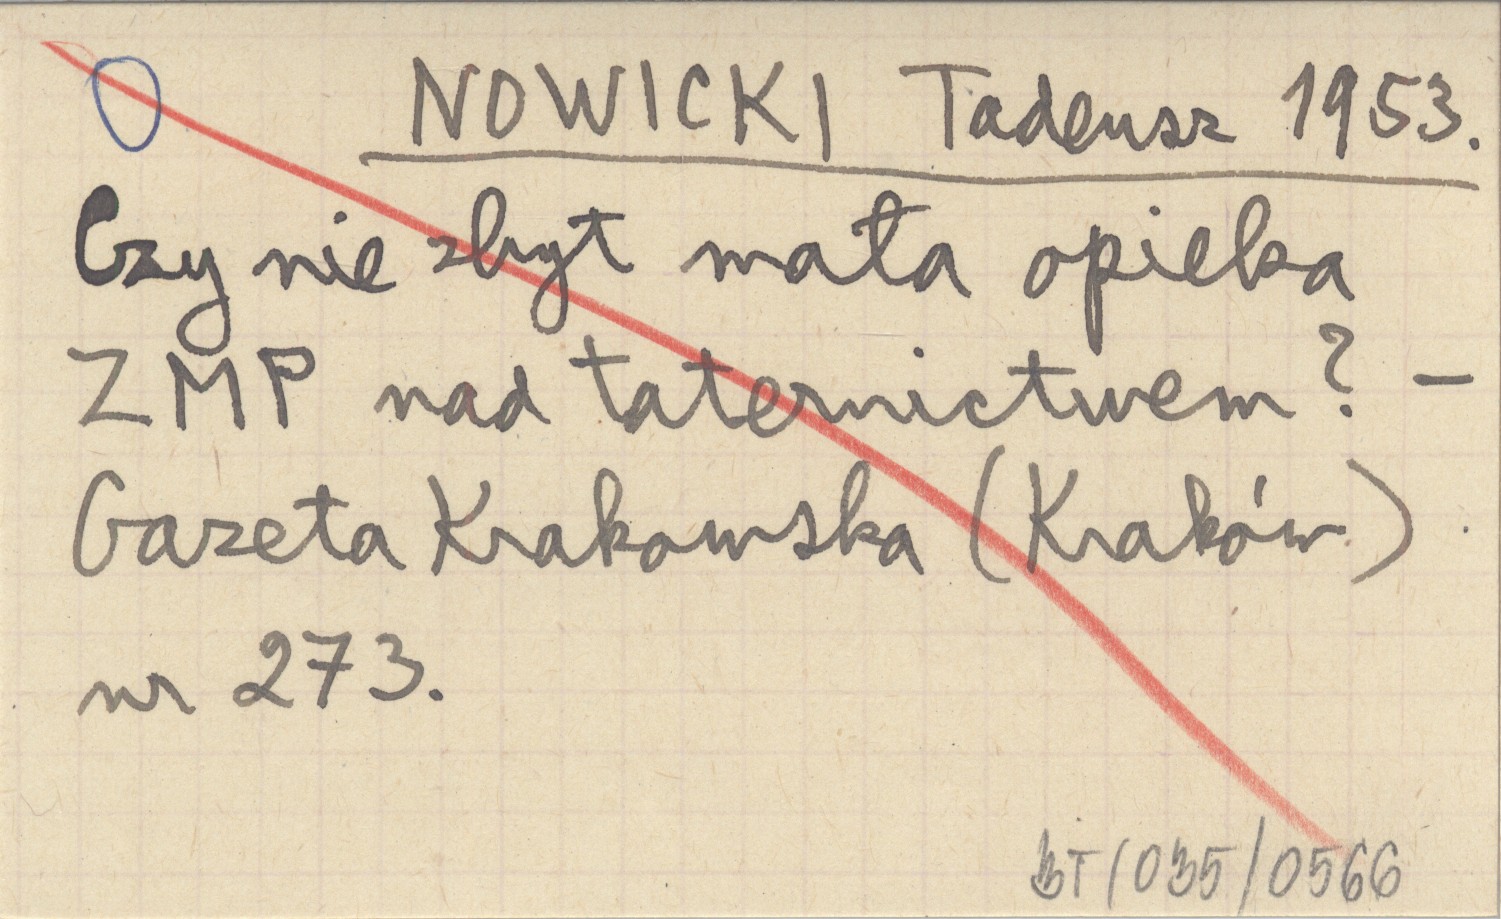 NOWICKI Tadeusz 1953.
Czy nie zbyt mała opieka
ZMP nad taternictwem? –
Gazeta Krakowska (Kraków)
nr 273.
BT/035/0566